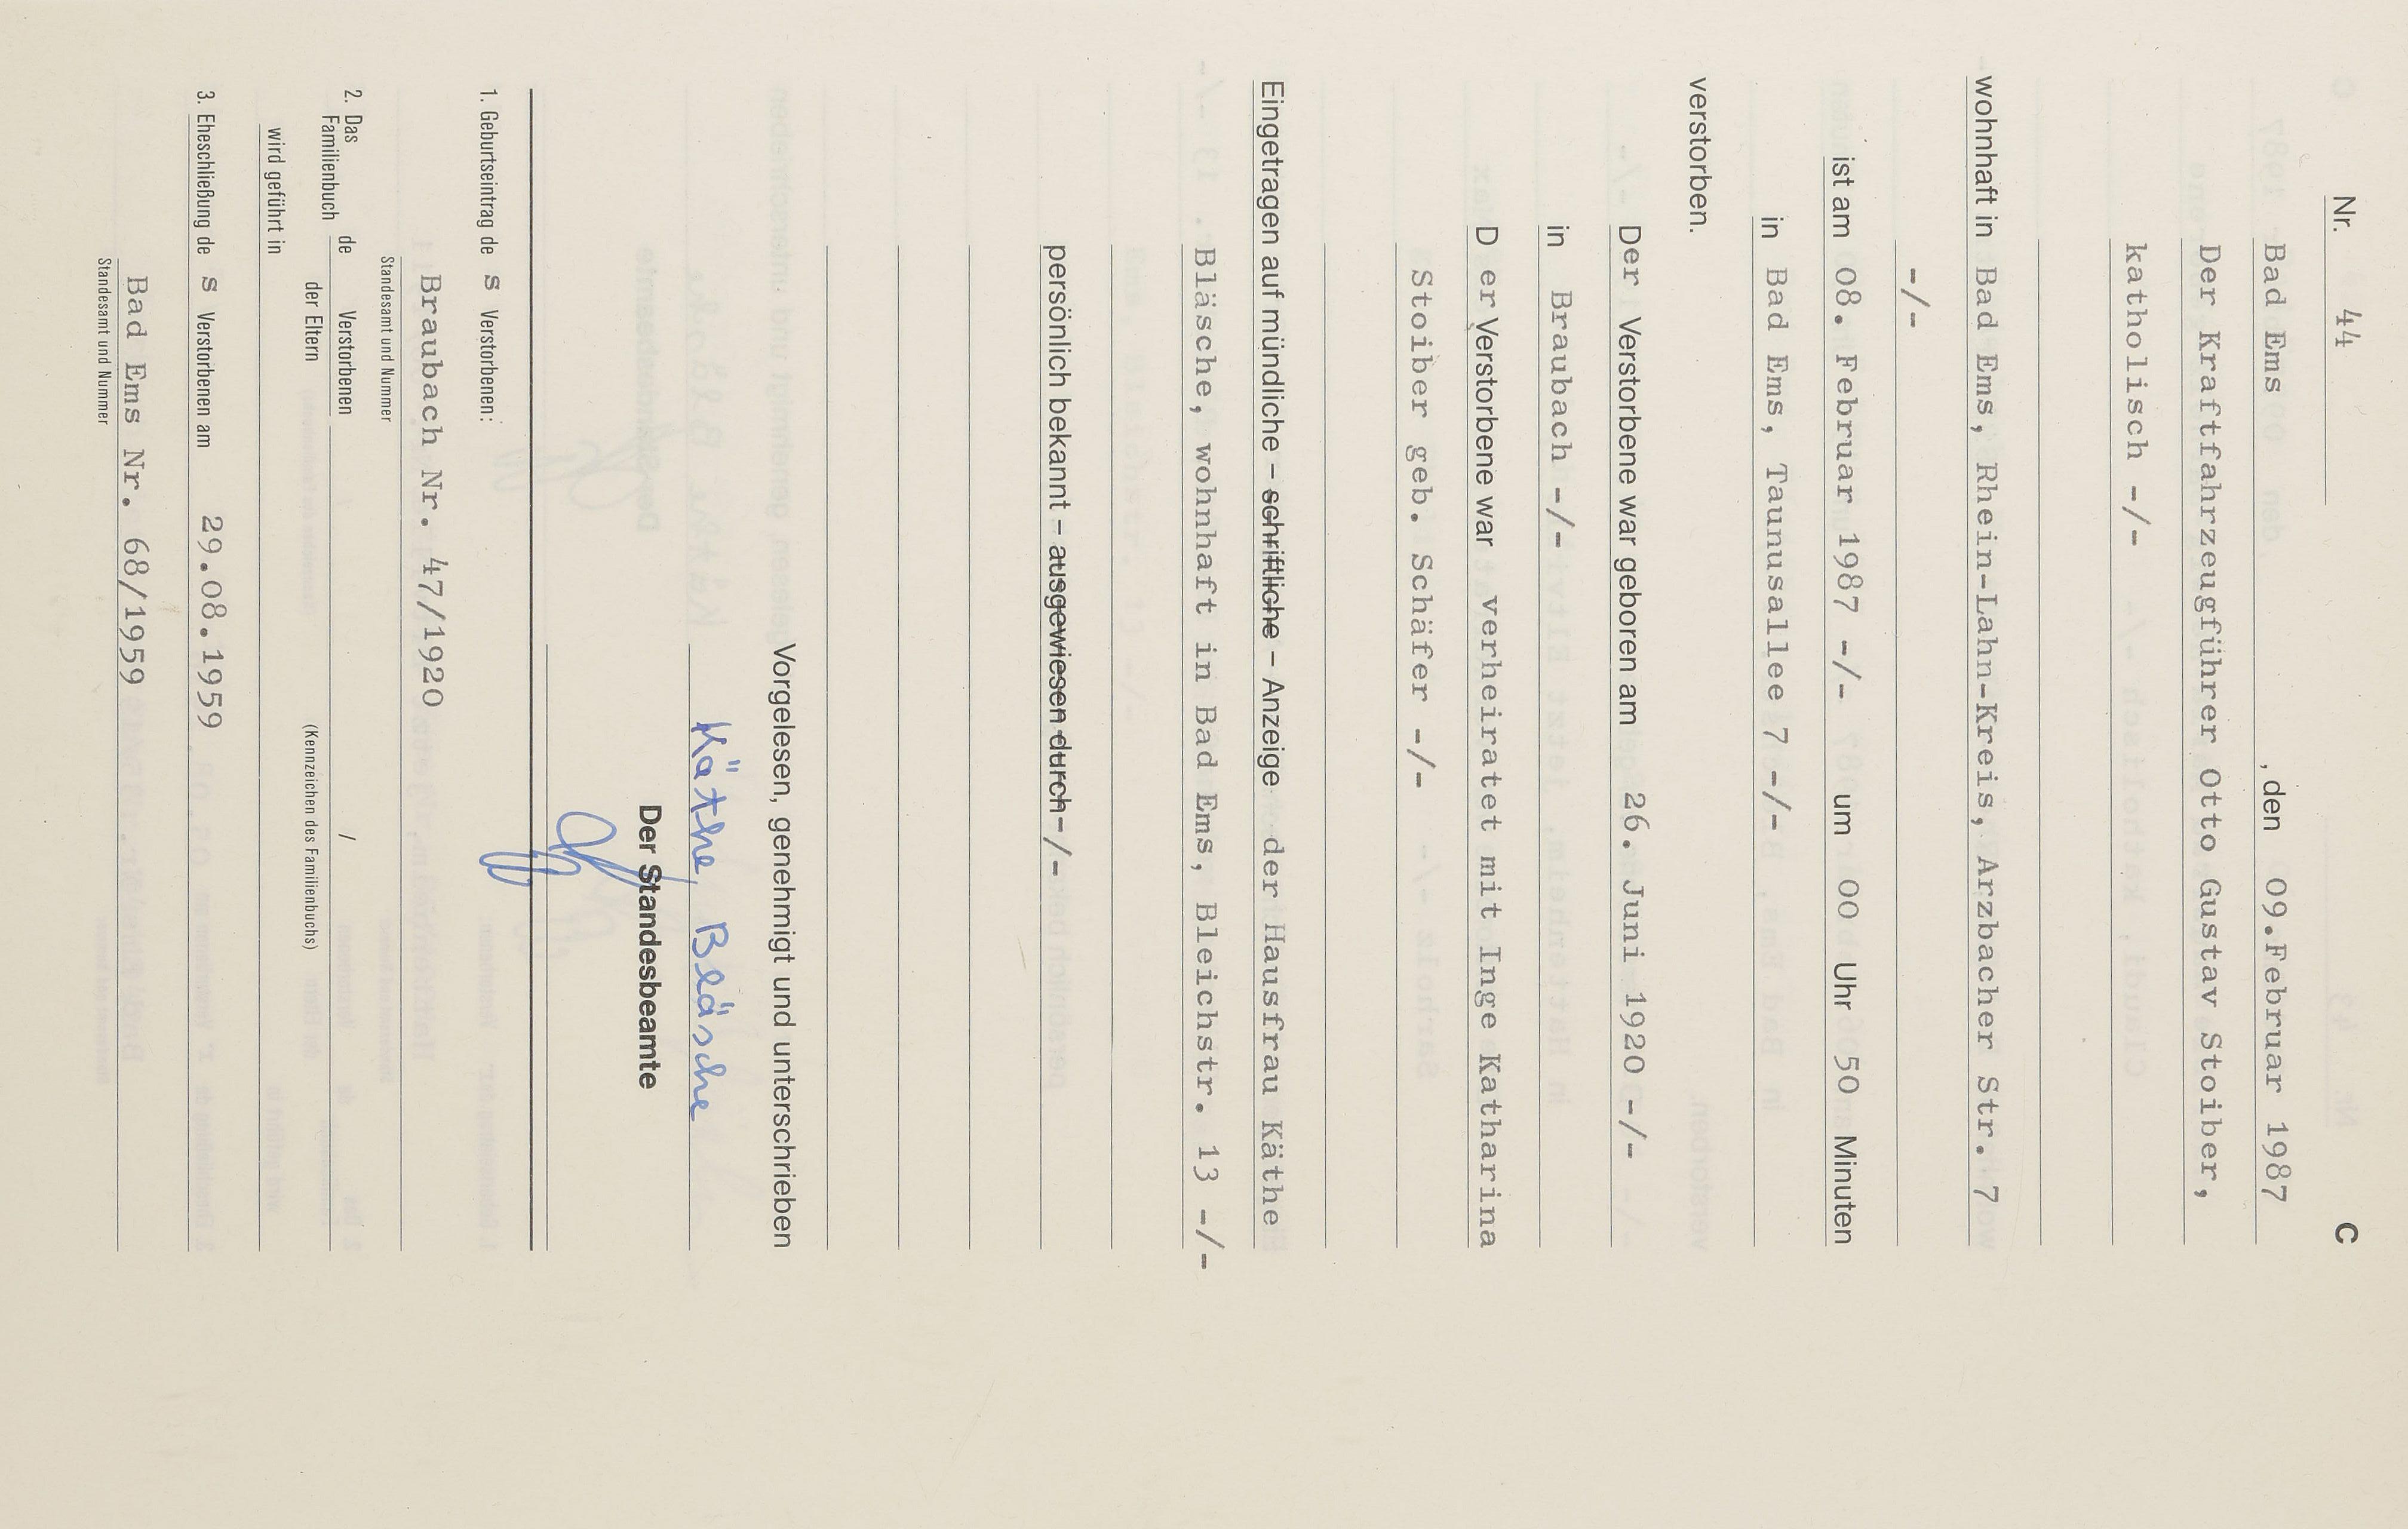 C
Nr. 44
Bad Ems , den 09.Februar 1987
Der Kraftfahrzeugführer Otto Gustav Stoiber,
katholisch -/-
wohnhaft in Bad Ems, Rhein-Lahn-Kreis, Arzbacher Str. 7
-/-
ist am 08. Februar 1987 -/- um 00 Uhr 50 Minuten
in Bad Ems, Taunusallee 7 -/-
verstorben.
Der Verstorbene war geboren am 26. Juni 1920 -/-
in Braubach -/-
D er Verstorbene war verheiratet mit Inge Katharina
Stoiber geb. Schäfer -/-
Eingetragen auf mündliche – schriftliche – Anzeige der Hausfrau Käthe
Bläsche, wohnhaft in Bad Ems, Bleichstr. 13 -/-
persönlich bekannt – ausgewiesen durch -/-
Vorgelesen, genehmigt und unterschrieben
Käthe Bläsche
Der Standesbeamte
1. Geburtseintrag de s Verstorbenen:
Braubach Nr. 47/1920
Standesamt und Nummer
2. Das Familienbuch de Verstorbenen der Eltern /
(Kennzeichen des Familienbuchs)
wird geführt in
3. Eheschließung de s Verstorbenen am 29.08.1959
Bad Ems Nr. 68/1959
Standesamt und Nummer